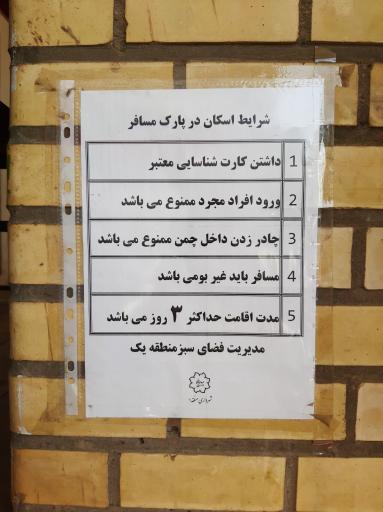 شرایط اسکان در پارک مسافر
1 داشتن کارت شناسایی معتبر
2 ورود افراد مجرد ممنوع می باشد
3 چادر زدن داخل چمن ممنوع می باشد
4 مسافر باید غیر بومی باشد
5 مدت اقامت حداکثر ۳ روز می باشد
مدیریت فضای سبز منطقه یک